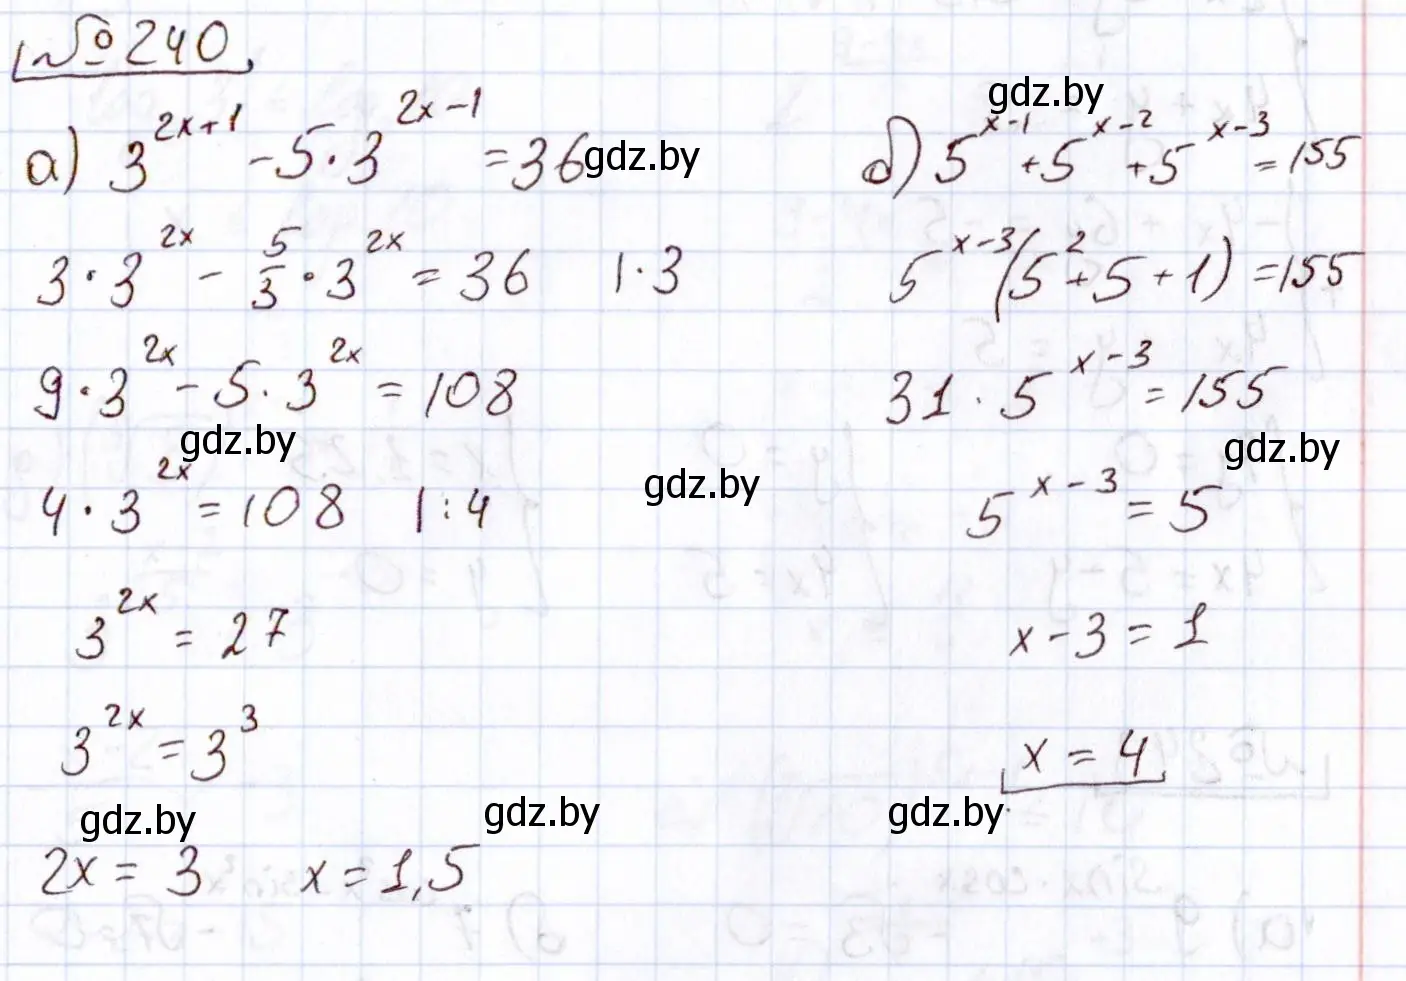 №240
а) 3^(2x+1) - 5·3^(2x-1) = 36
3·3^(2x) - 5/3·3^(2x) = 36 |·3
9·3^(2x) - 5·3^(2x) = 108
4·3^(2x) = 108 |:4
3^(2x) = 27
3^(2x) = 3^3
2x = 3 x = 1,5
б) 5^(x-1) + 5^(x-2) + 5^(x-3) = 155
5^(x-3)(5^2 + 5 + 1) = 155
31·5^(x-3) = 155
5^(x-3) = 5
x - 3 = 1
x = 4
gdz.by
gdz.by
gdz.by
gdz.by
gdz.by
gdz.by
gdz.by
gdz.by